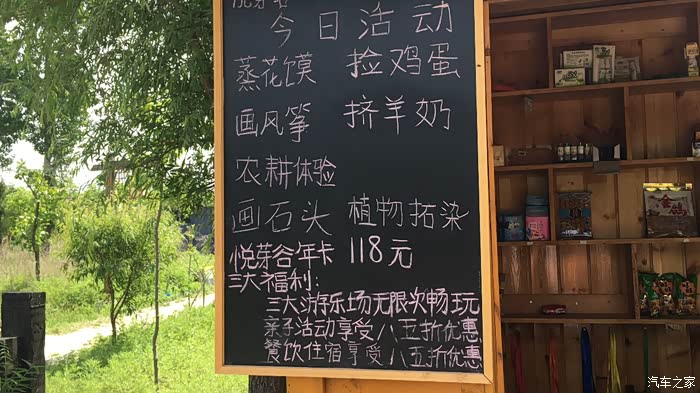 悦芽谷
今日活动
蒸花馍 捡鸡蛋
画风筝 挤羊奶
农耕体验
画石头 植物拓染
悦芽谷年卡 118元
三大福利:
三大游乐场无限次畅玩
亲子活动享受八五折优惠
餐饮住宿享受八五折优惠
汽车之家